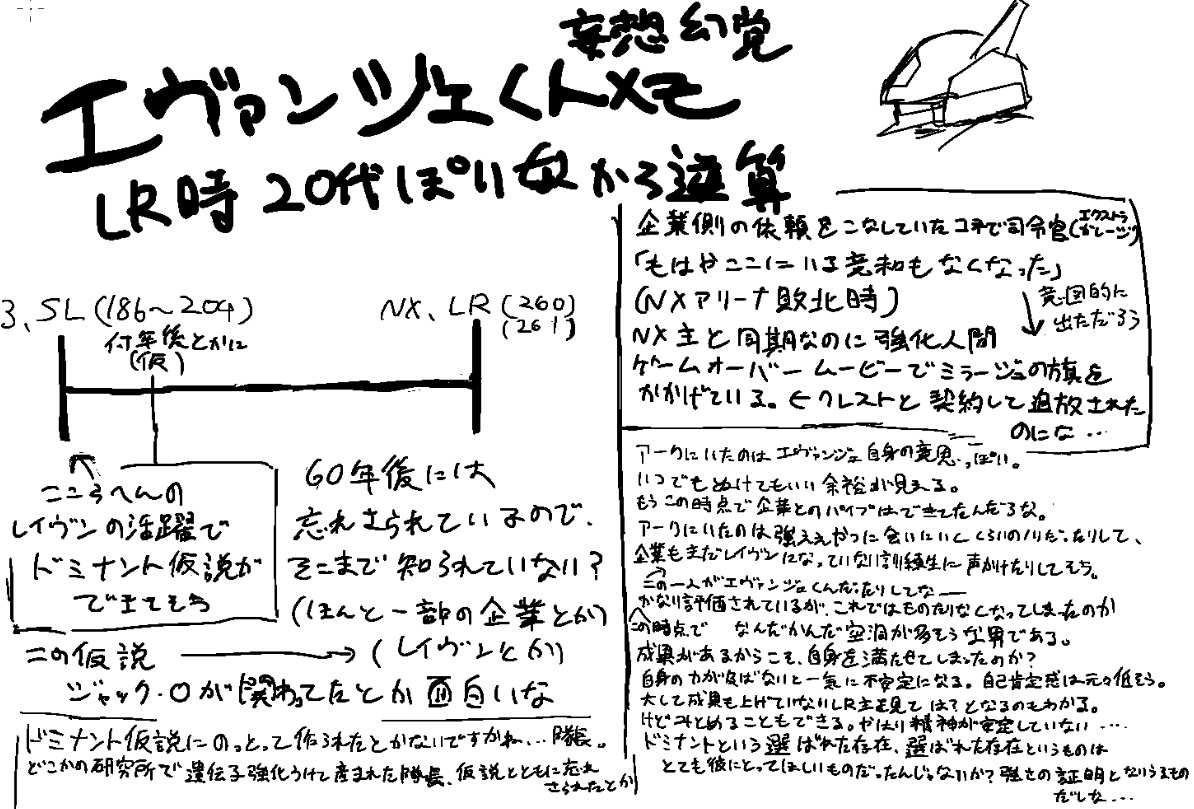 妄想幻覚
エヴァンジェくんメモ
LR時 20代ぽい女から逆算
3、SL(186～204)
付年後とかに
(仮)
NX、LR(260)
(261)
ここらへんの
レイヴンの活躍で
ドミナント仮説が
でてそう
60年後には
忘れさられているので、
そこまで知られていない?
(ほんと一部の企業とか)
この仮説 → (レイヴンとか)
ジャック・Oが関わってたとか面白いな
ドミナント仮説にのっとって作られたとかないですかね…隊長。
どこかの研究所で遺伝子強化うけて産まれた隊長、仮説とともに忘れ
さられたとか
企業側の依頼をこなしていたコネで司令官(エクストラガレージ)
「もはやここにいる意味もなくなった」
(NXアリーナ敗北時)
意図的に
出ただろう
NX主と同期なのに強化人間
ゲームオーバームービーでミラージュの旗を
かかげている。←クレストと契約して追放された
のにな…
アークにいたのはエヴァンジェ自身の意思っぽい。
いつでもぬけてもいい余裕が見える。
もうこの時点で企業とのパイプはできてたんだろな。
アークにいたのは強ええやつに会いにいくくらいのノリだったりして、
企業もまだレイヴンになっていない訓練生に声かけたりしてそう。
この一人がエヴァンジェくんだたりしてな―
かなり評価されているが、これではものたりなくなってしまったのか
この時点で なんだかんだ空洞が多そうな男である。
成果があるからこそ、自身を満たせてしまったのか?
自身の力が及ばないと一気に不安定になる。自己肯定感は元々低そう。
大して成果も上げていないLR主を見ては?となるのもわかる。
けどみとめることもできる。やはり精神が安定していない…
ドミナントという選ばれた存在、選ばれた存在というものは
とても彼にとってほしいものだったんじゃないか?強さの証明となりうるもの
だしな…